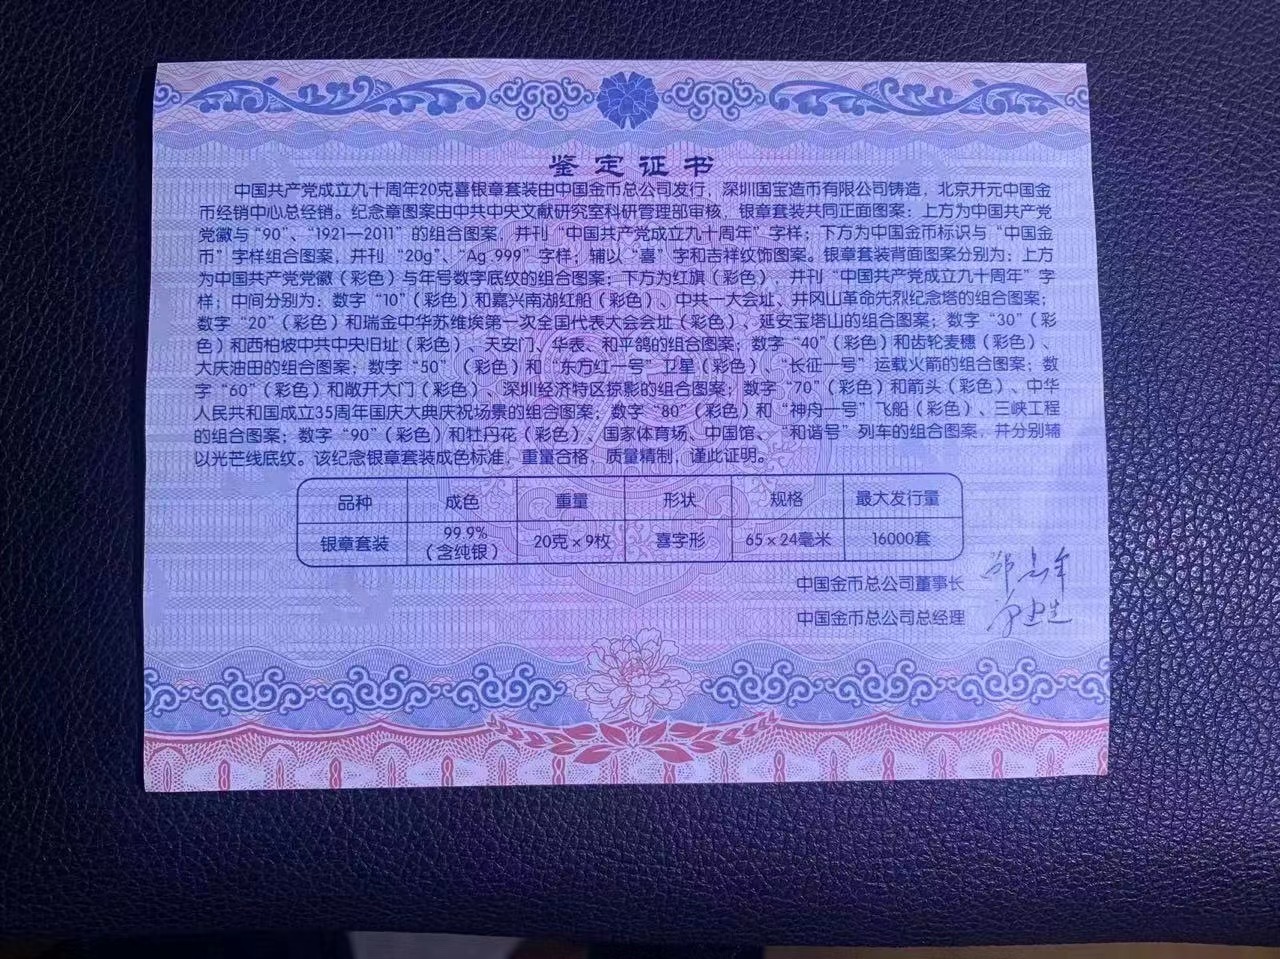 鉴定证书
中国共产党成立九十周年20克喜银章套装由中国金币总公司发行，深圳国宝造币有限公司铸造，北京开元中国金
币经销中心总经销。纪念章图案由中共中央文献研究室科研管理部审核，银章套装共同正面图案：上方为中国共产党
党徽与“90”、“1921—2011”的组合图案，并刊“中国共产党成立九十周年”字样；下方为中国金币标识与“中国金
币”字样组合图案，并刊“20g”、“Ag.999”字样；辅以“喜”字和吉祥纹饰图案。银章套装背面图案分别为：上方
为中国共产党党徽（彩色）与年号数字底纹的组合图案；下方为红旗（彩色），并刊“中国共产党成立九十周年”字
样；中间分别为：数字“10”（彩色）和嘉兴南湖红船（彩色）、中共一大会址、井冈山革命先烈纪念塔的组合图案；
数字“20”（彩色）和瑞金中华苏维埃第一次全国代表大会会址（彩色）、延安宝塔山的组合图案；数字“30”（彩
色）和西柏坡中共中央旧址（彩色）、天安门、华表、和平鸽的组合图案；数字“40”（彩色）和齿轮麦穗（彩色）、
大庆油田的组合图案；数字“50”（彩色）和“东方红一号”卫星（彩色）、“长征一号”运载火箭的组合图案；数
字“60”（彩色）和敞开大门（彩色）、深圳经济特区掠影的组合图案；数字“70”（彩色）和箭头（彩色）、中华
人民共和国成立35周年国庆大典庆祝场景的组合图案；数字“80”（彩色）和“神舟一号”飞船（彩色）、三峡工程
的组合图案；数字“90”（彩色）和牡丹花（彩色）、国家体育场、中国馆、“和谐号”列车的组合图案，并分别辅
以光芒线底纹。该纪念银章套装成色标准，重量合格，质量精制，谨此证明。
品种 成色 重量 形状 规格 最大发行量
银章套装 99.9%（含纯银） 20克×9枚 喜字形 65×24毫米 16000套
中国金币总公司董事长
中国金币总公司总经理